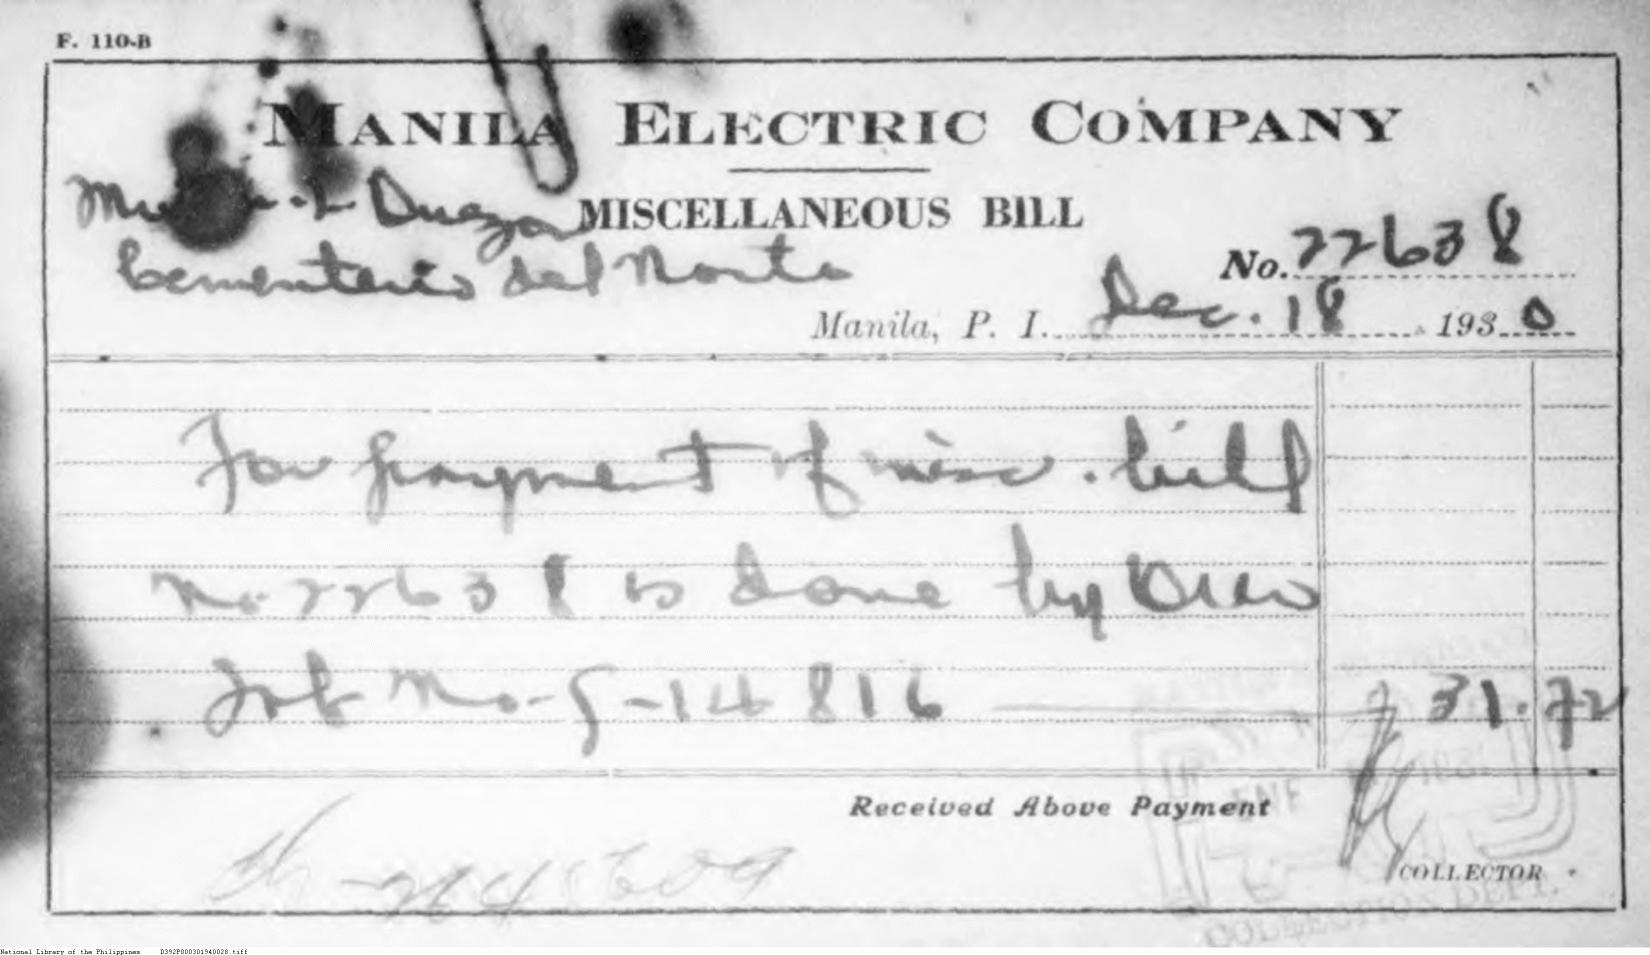 F. 110-B
MANILA ELECTRIC COMPANY
Duezon
MISCELLANEOUS BILL
Cementerio del Norte
No. 22638
Manila, P. I. Dec. 18 1930
For payment of misc. bill
No. 22638 as done by
Job No-S-14816 ₱ 31.72
Received Above Payment
COLLECTOR
COLLECTION DEPT.
National Library of the Philippines D392P000301940028.tiff